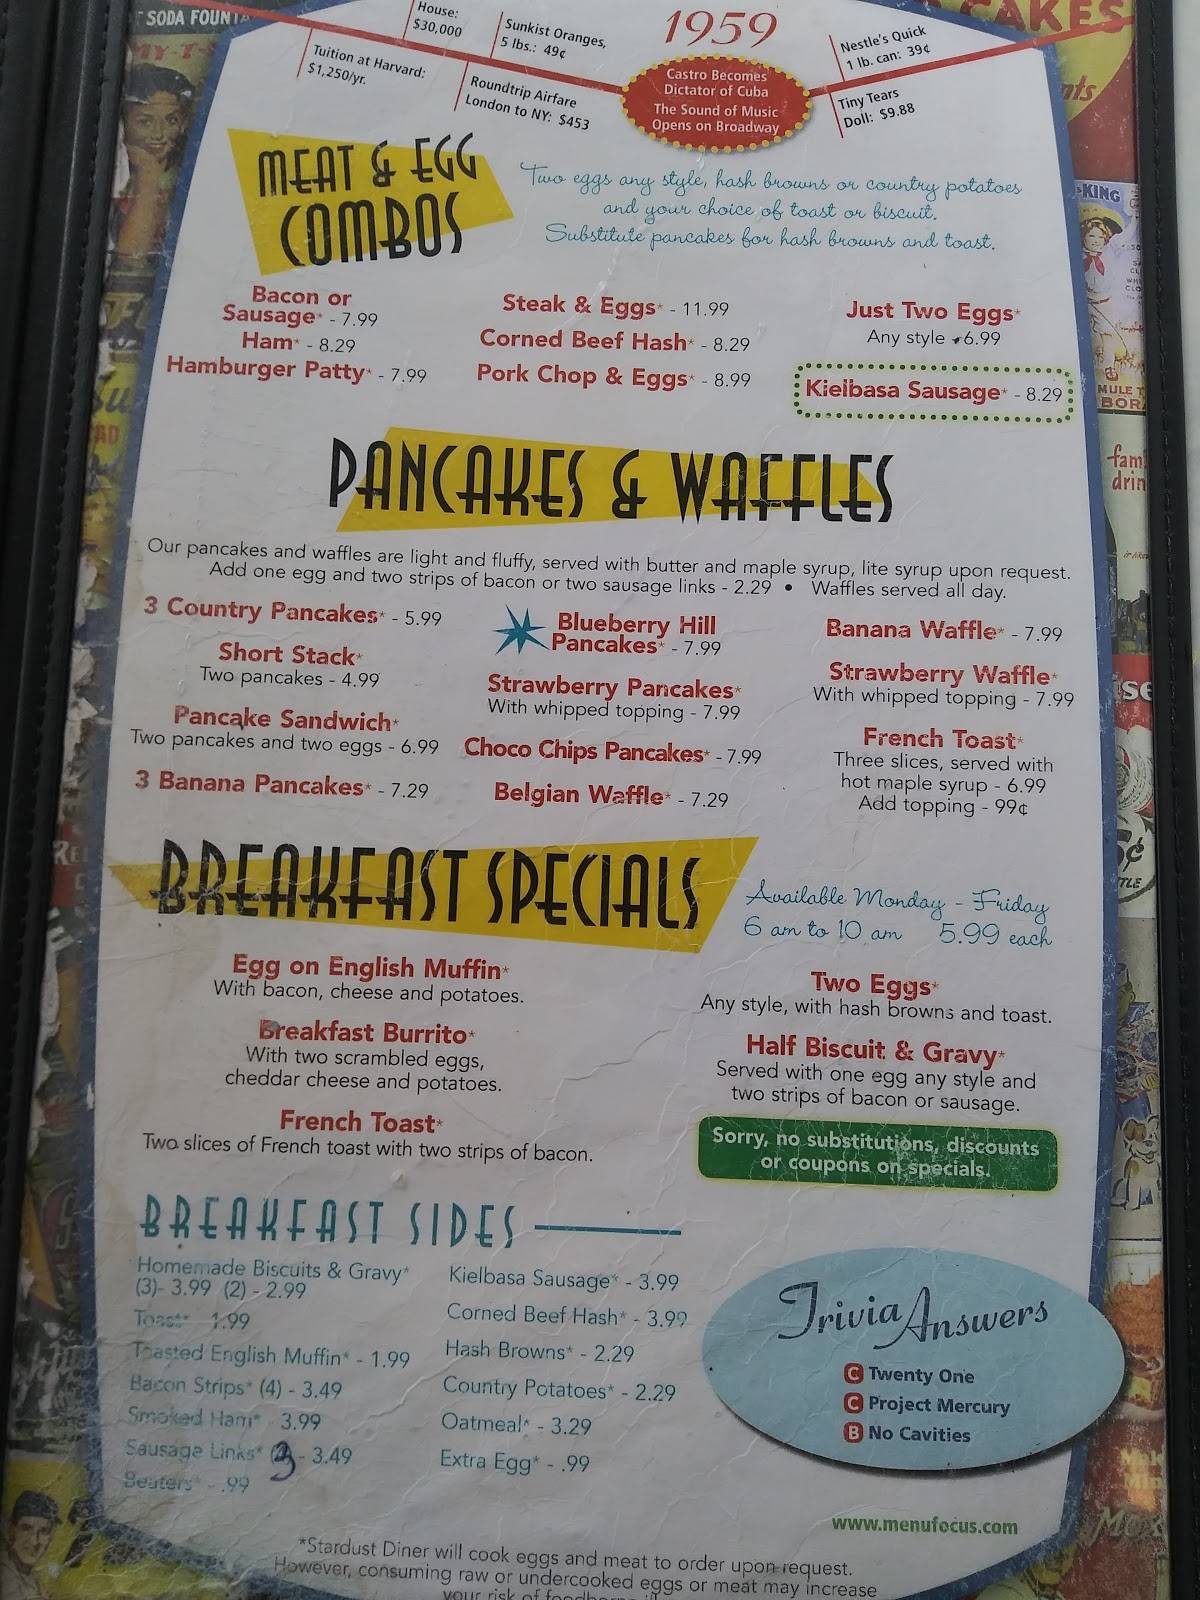 SODA FOUNTA
House:
$30,000
Tuition at Harvard:
$1,250/yr.
Sunkist Oranges,
5 lbs.: 49¢
Roundtrip Airfare
London to NY: $453
1959
Castro Becomes
Dictator of Cuba
The Sound of Music
Opens on Broadway
Nestle's Quick
1 lb. can: 39¢
Tiny Tears
Doll: $9.88
CAKES
MEAT & EGG
COMBOS
Two eggs any style, hash browns or country potatoes
and your choice of toast or biscuit.
Substitute pancakes for hash browns and toast.
Bacon or
Sausage* - 7.99
Ham* - 8.29
Hamburger Patty* - 7.99
Steak & Eggs* - 11.99
Corned Beef Hash* - 8.29
Pork Chop & Eggs* - 8.99
Just Two Eggs*
Any style - 6.99
Kielbasa Sausage* - 8.29
PANCAKES & WAFFLES
Our pancakes and waffles are light and fluffy, served with butter and maple syrup, lite syrup upon request.
Add one egg and two strips of bacon or two sausage links - 2.29 • Waffles served all day.
3 Country Pancakes* - 5.99
Short Stack*
Two pancakes - 4.99
Pancake Sandwich*
Two pancakes and two eggs - 6.99
3 Banana Pancakes* - 7.29
Blueberry Hill
Pancakes* - 7.99
Strawberry Pancakes*
With whipped topping - 7.99
Choco Chips Pancakes* - 7.99
Belgian Waffle* - 7.29
Banana Waffle* - 7.99
Strawberry Waffle*
With whipped topping - 7.99
French Toast*
Three slices, served with
hot maple syrup - 6.99
Add topping - 99¢
BREAKFAST SPECIALS
Available Monday - Friday
6 am to 10 am 5.99 each
Egg on English Muffin*
With bacon, cheese and potatoes.
Breakfast Burrito*
With two scrambled eggs,
cheddar cheese and potatoes.
French Toast*
Two slices of French toast with two strips of bacon.
Two Eggs*
Any style, with hash browns and toast.
Half Biscuit & Gravy*
Served with one egg any style and
two strips of bacon or sausage.
Sorry, no substitutions, discounts
or coupons on specials.
BREAKFAST SIDES
Homemade Biscuits & Gravy*
(3)- 3.99 (2) - 2.99
Toast* 1.99
Toasted English Muffin* - 1.99
Bacon Strips* (4) - 3.49
Smoked Ham* 3.99
Sausage Links* 3 - 3.49
Beaters* - .99
Kielbasa Sausage* - 3.99
Corned Beef Hash* - 3.99
Hash Browns* - 2.29
Country Potatoes* - 2.29
Oatmeal* - 3.29
Extra Egg* - .99
Trivia Answers
C Twenty One
C Project Mercury
B No Cavities
www.menufocus.com
*Stardust Diner will cook eggs and meat to order upon request.
However, consuming raw or undercooked eggs or meat may increase
your risk of